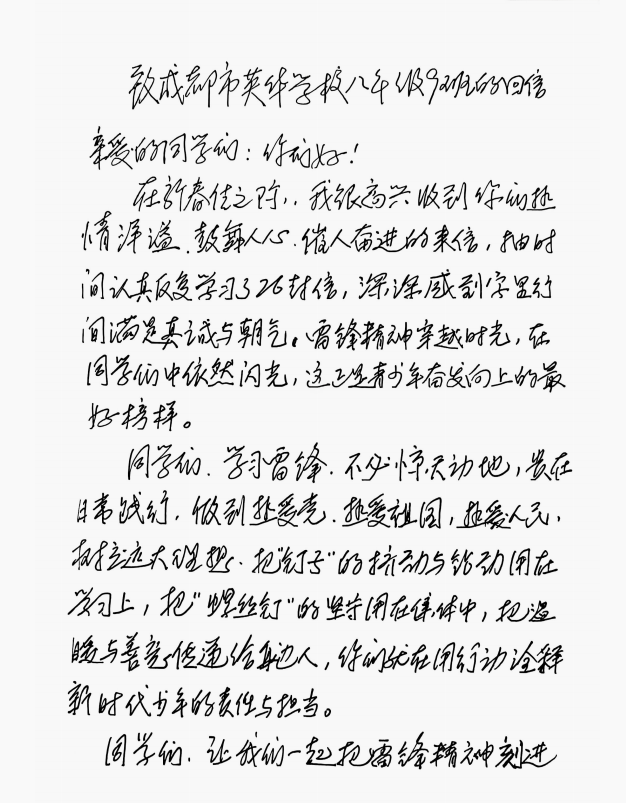 致成都市英华学校八年级9班的回信
亲爱的同学们：你们好！
在新春佳之际，我很高兴收到你们热
情洋溢、鼓舞人心、催人奋进的来信，抽时
间认真反复学习了26封信，深深感到字里行
间满是真诚与朝气。雷锋精神穿越时光，在
同学们中依然闪光，这正是青少年奋发向上的最
好榜样。
同学们、学习雷锋、不必惊天动地，贵在
日常践行，做到热爱党、热爱祖国，热爱人民，
树立远大理想、把“钉子”的挤劲与钻劲用在
学习上，把“螺丝钉”的坚守用在集体中，把温
暖与善意传递给身边人，你们就在用行动诠释
新时代少年的责任与担当。
同学们、让我们一起把雷锋精神刻进